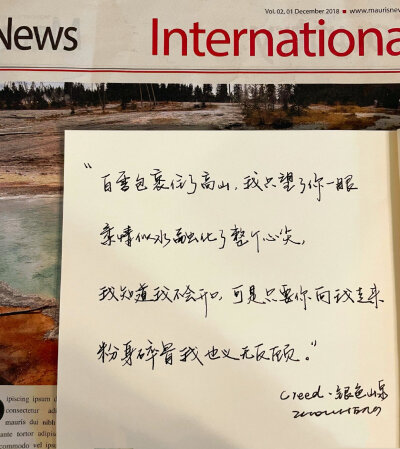 Vol. 02, 01 December 2018 ■ www.maurisne
News Internationa
“白雪包裹住了高山,我只望了你一眼
柔情似水融化了整个心尖,
我知道我不会开口,可是只要你向我走来
粉身碎骨我也义无反顾。”
Creed·银色山泉
ipiscing ipsum d
consectetur adi
mauris dui nibh
ante tortor adipis
commodo vel ips